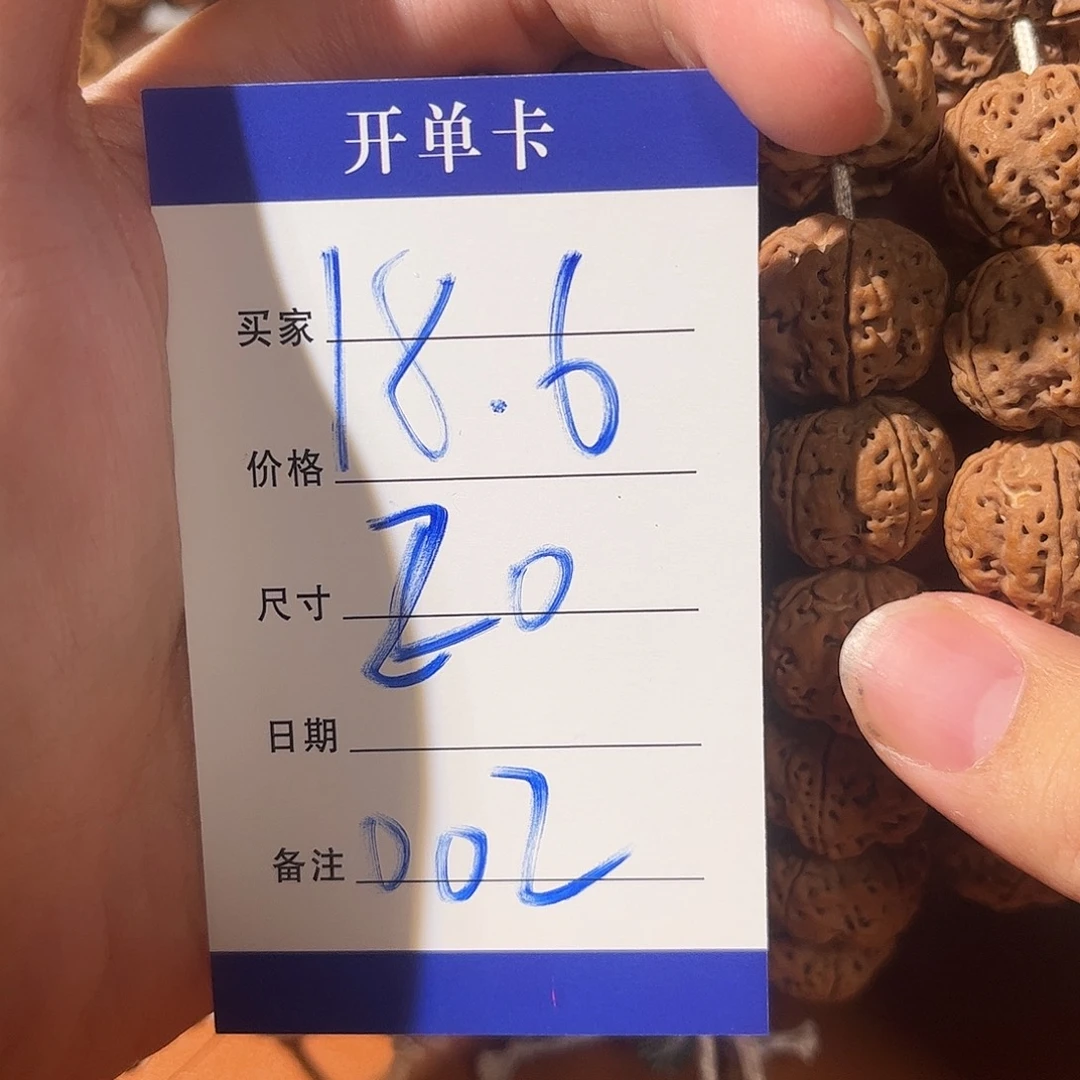 开单卡
买家 18.6
价格
尺寸 20
日期
备注 002